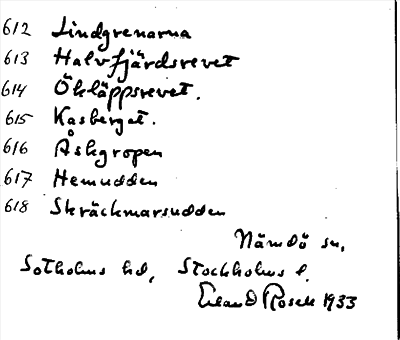 612 Lindgrenarna
613 Halvfjärdsrevet
614 Ökläppsrevet.
615 Kasberget.
616 Åskgropen
617 Hemudden
618 Skräckmarsudden
Nämdö sn,
Sotholms hd, Stockholms l.
Erland Rosell 1933